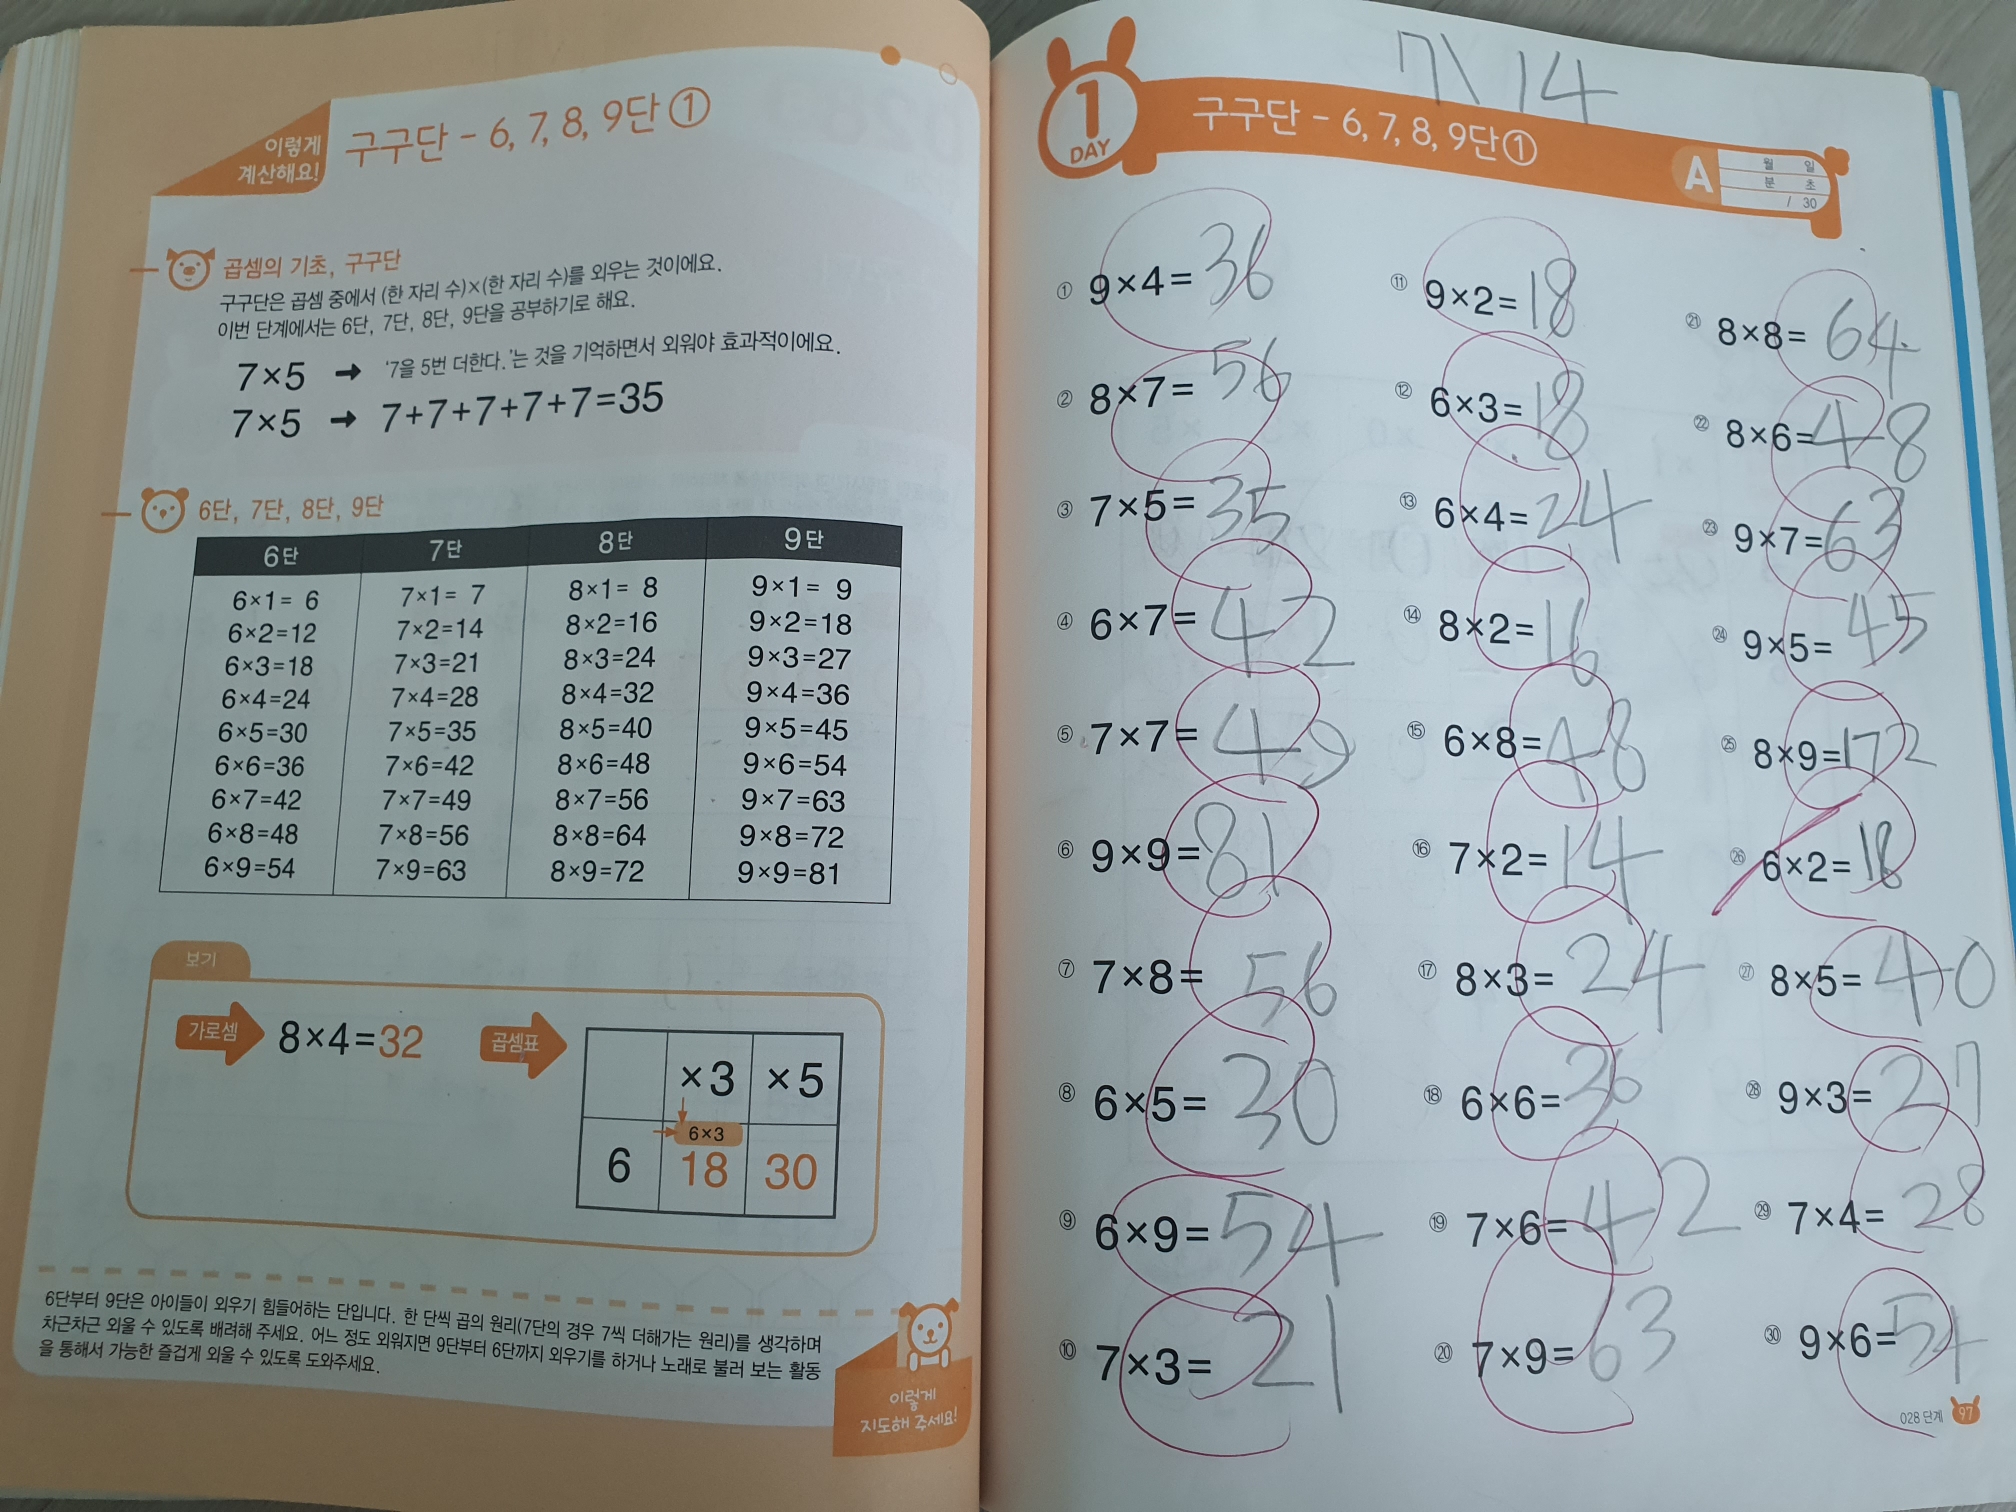 이렇게
계산해요!
구구단 - 6, 7, 8, 9단 ①
곱셈의 기초, 구구단
구구단은 곱셈 중에서 (한 자리 수)×(한 자리 수)를 외우는 것이에요.
이번 단계에서는 6단, 7단, 8단, 9단을 공부하기로 해요.
7×5 → '7을 5번 더한다.'는 것을 기억하면서 외워야 효과적이에요.
7×5 → 7+7+7+7+7=35
6단, 7단, 8단, 9단
6단 7단 8단 9단
6×1= 6 7×1= 7 8×1= 8 9×1= 9
6×2=12 7×2=14 8×2=16 9×2=18
6×3=18 7×3=21 8×3=24 9×3=27
6×4=24 7×4=28 8×4=32 9×4=36
6×5=30 7×5=35 8×5=40 9×5=45
6×6=36 7×6=42 8×6=48 9×6=54
6×7=42 7×7=49 8×7=56 9×7=63
6×8=48 7×8=56 8×8=64 9×8=72
6×9=54 7×9=63 8×9=72 9×9=81
보기
가로셈 8×4=32 곱셈표
×3 ×5
6×3
6 18 30
6단부터 9단은 아이들이 외우기 힘들어하는 단입니다. 한 단씩 곱의 원리(7단의 경우 7씩 더해가는 원리)를 생각하며
차근차근 외울 수 있도록 배려해 주세요. 어느 정도 외워지면 9단부터 6단까지 외우기를 하거나 노래로 불러 보는 활동
을 통해서 가능한 즐겁게 외울 수 있도록 도와주세요.
이렇게
지도해 주세요!
7\14
1
DAY
구구단 - 6, 7, 8, 9단①
A
월 일
분 초
/ 30
① 9×4=36
② 8×7=56
③ 7×5=35
④ 6×7=42
⑤ 7×7=49
⑥ 9×9=81
⑦ 7×8=56
⑧ 6×5=30
⑨ 6×9=54
⑩ 7×3=21
⑪ 9×2=18
⑫ 6×3=18
⑬ 6×4=24
⑭ 8×2=16
⑮ 6×8=48
⑯ 7×2=14
⑰ 8×3=24
⑱ 6×6=36
⑲ 7×6=42
⑳ 7×9=63
㉑ 8×8=64
㉒ 8×6=48
㉓ 9×7=63
㉔ 9×5=45
㉕ 8×9=172
㉖ 6×2=18
㉗ 8×5=40
㉘ 9×3=27
㉙ 7×4=28
㉚ 9×6=54
028 단계 97